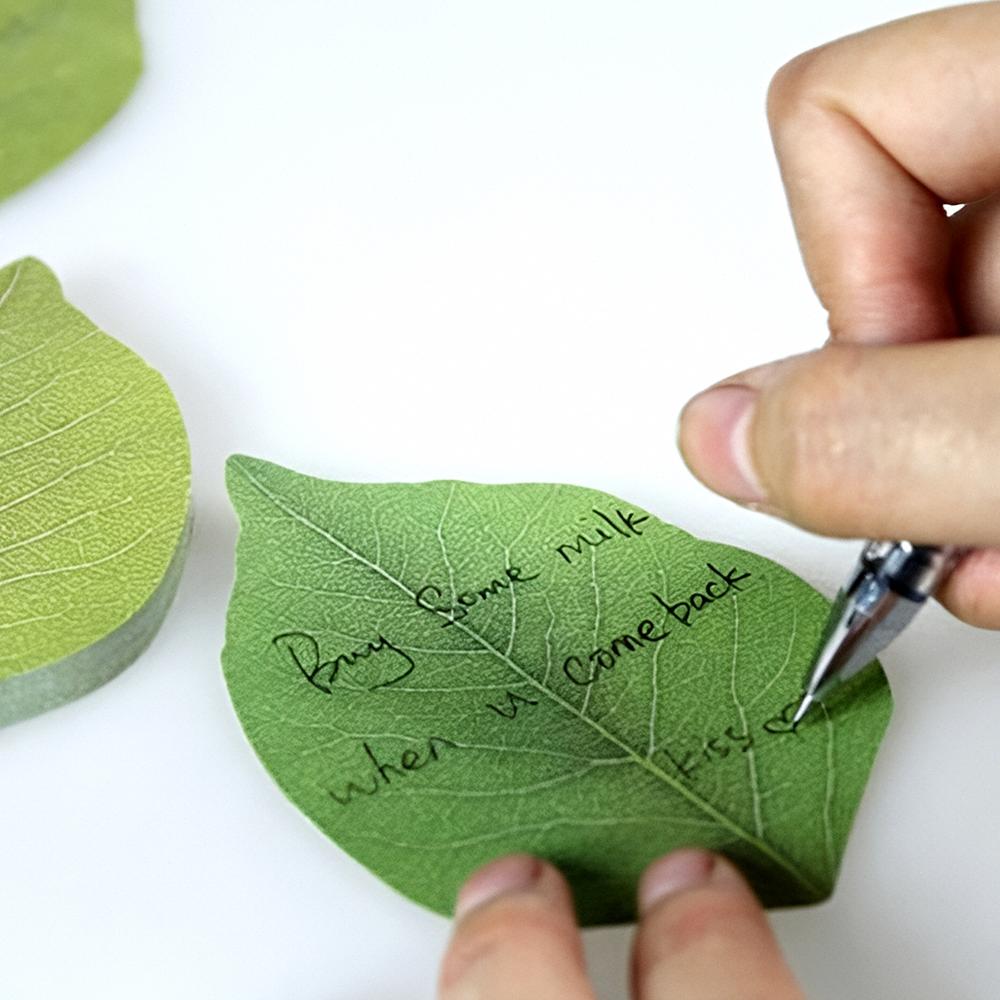 Buy Some milk
when u come back
kiss ♡